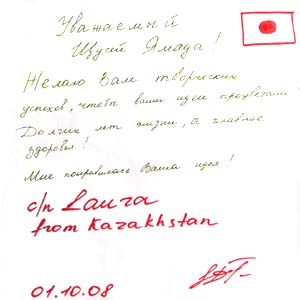 Уважаемый
Щусй Ямада!
Желаю Вам творческих
успехов, чтобы ваши идеи процветали!
Долгих лет жизни, а главное
здоровья!
Мне понравилась Ваша идея!
с/п Lauга
from Kazakhstan
01.10.08